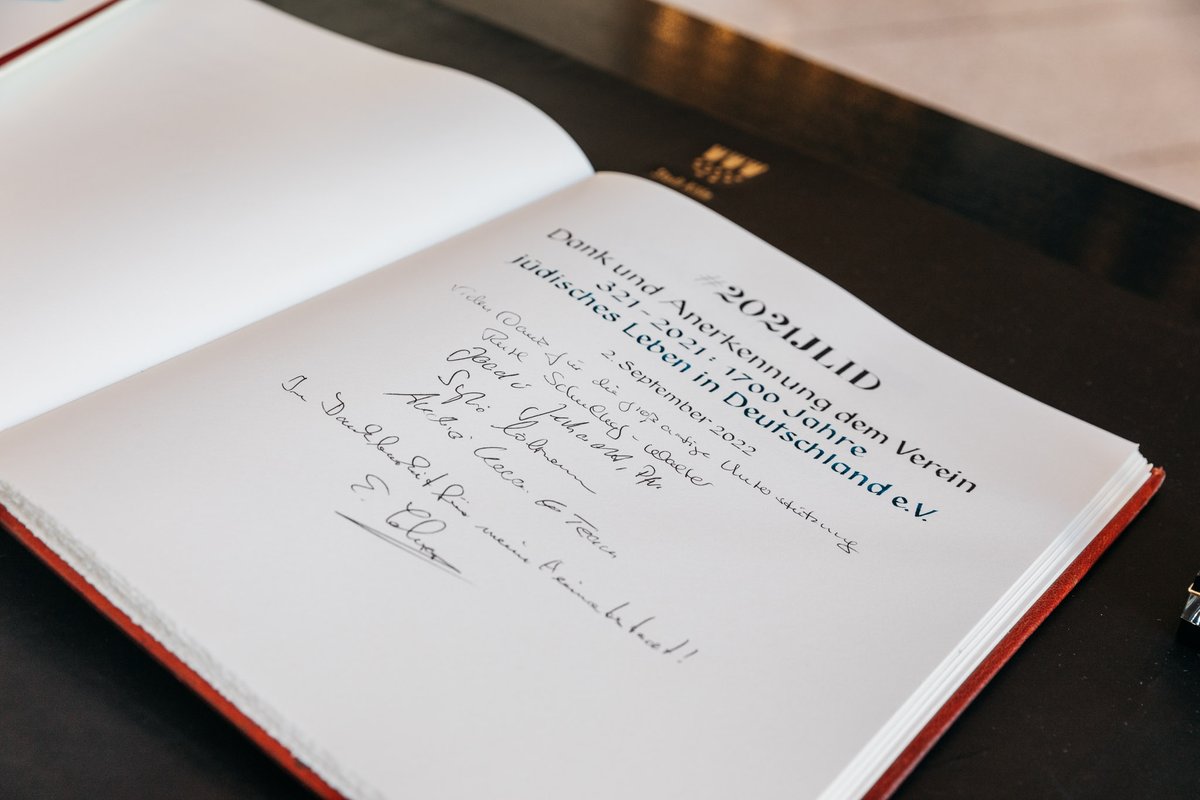 Stadt Köln
#2021JLID
Dank und Anerkennung dem Verein
321–2021: 1700 Jahre
jüdisches Leben in Deutschland e.V.
2. September 2022
Vielen Dank für die großartige Unterstützung
Schulhug-Walter
Pfr.
& Team
In Dankbarkeit für meine Heimatstadt!
E.